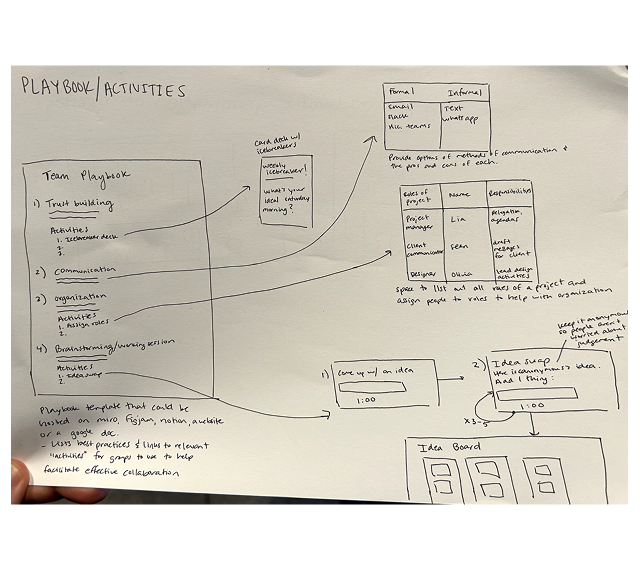 PLAYBOOK/ACTIVITIES
Team Playbook
1) Trust building
Activities
1. Icebreaker deck
2.
3.
2) Communication
3) Organization
Activities
1. Assign roles
2.
4) Brainstorming/working session
Activities
1. Idea swap
2.
Playbook template that could be
hosted on miro, Figjam, notion, a website
or a google doc.
- Lists best practices & links to relevant
"activities" for groups to use to help
facilitate effective collaboration
Card deck w/
icebreakers
weekly
icebreaker!
what's your
ideal saturday
morning?
Formal Informal
Email Text
slack whatsapp
Mic. teams
Provide options of methods of communication &
the pros and cons of each.
Roles of project Name Responsibilities
Project manager Lia Delegation, agendas
Client communicator Sean draft messages for client
Designer Olivia lead design activities
space to list out all roles of a project and
assign people to roles to help with organization
1) Come up w/ an idea
1:00
2) Idea swap
idea.
Add 1 thing:
1:00
x3-5
keep it anonymous
so people aren't
worried about
judgement
Idea Board